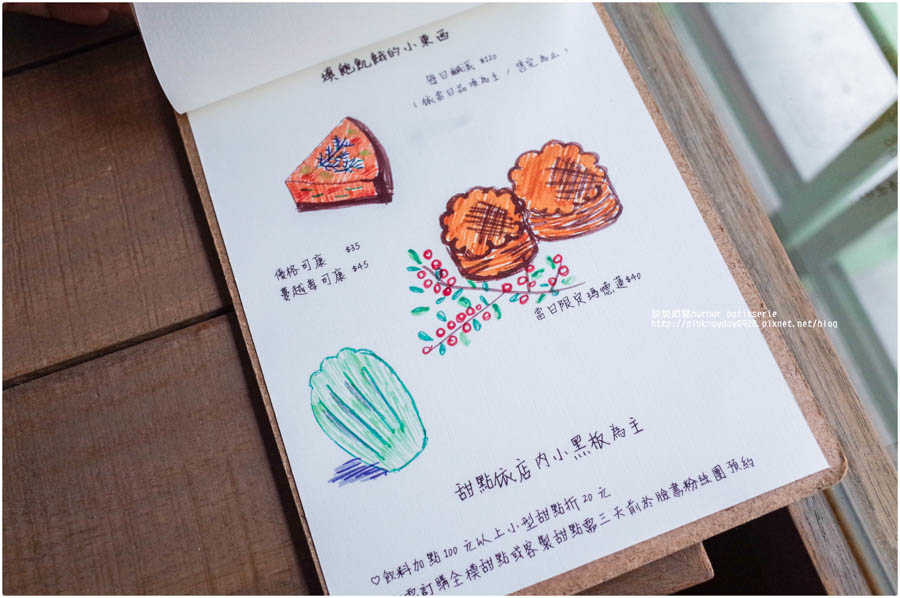 填飽飢餓的小東西
每日鹹派 $120
(依當日品項為主,售完為止)
優格司康 $35
蔓越莓司康 $45
當日限定瑪德蓮$40
nurnur patisserie
http://pinknoydoy0928.pixnet.net/blog
甜點依店內小黑板為主
♡飲料加點100元以上小型甜點折20元
訂購全模甜點或客製甜點需三天前於臉書粉絲團預約